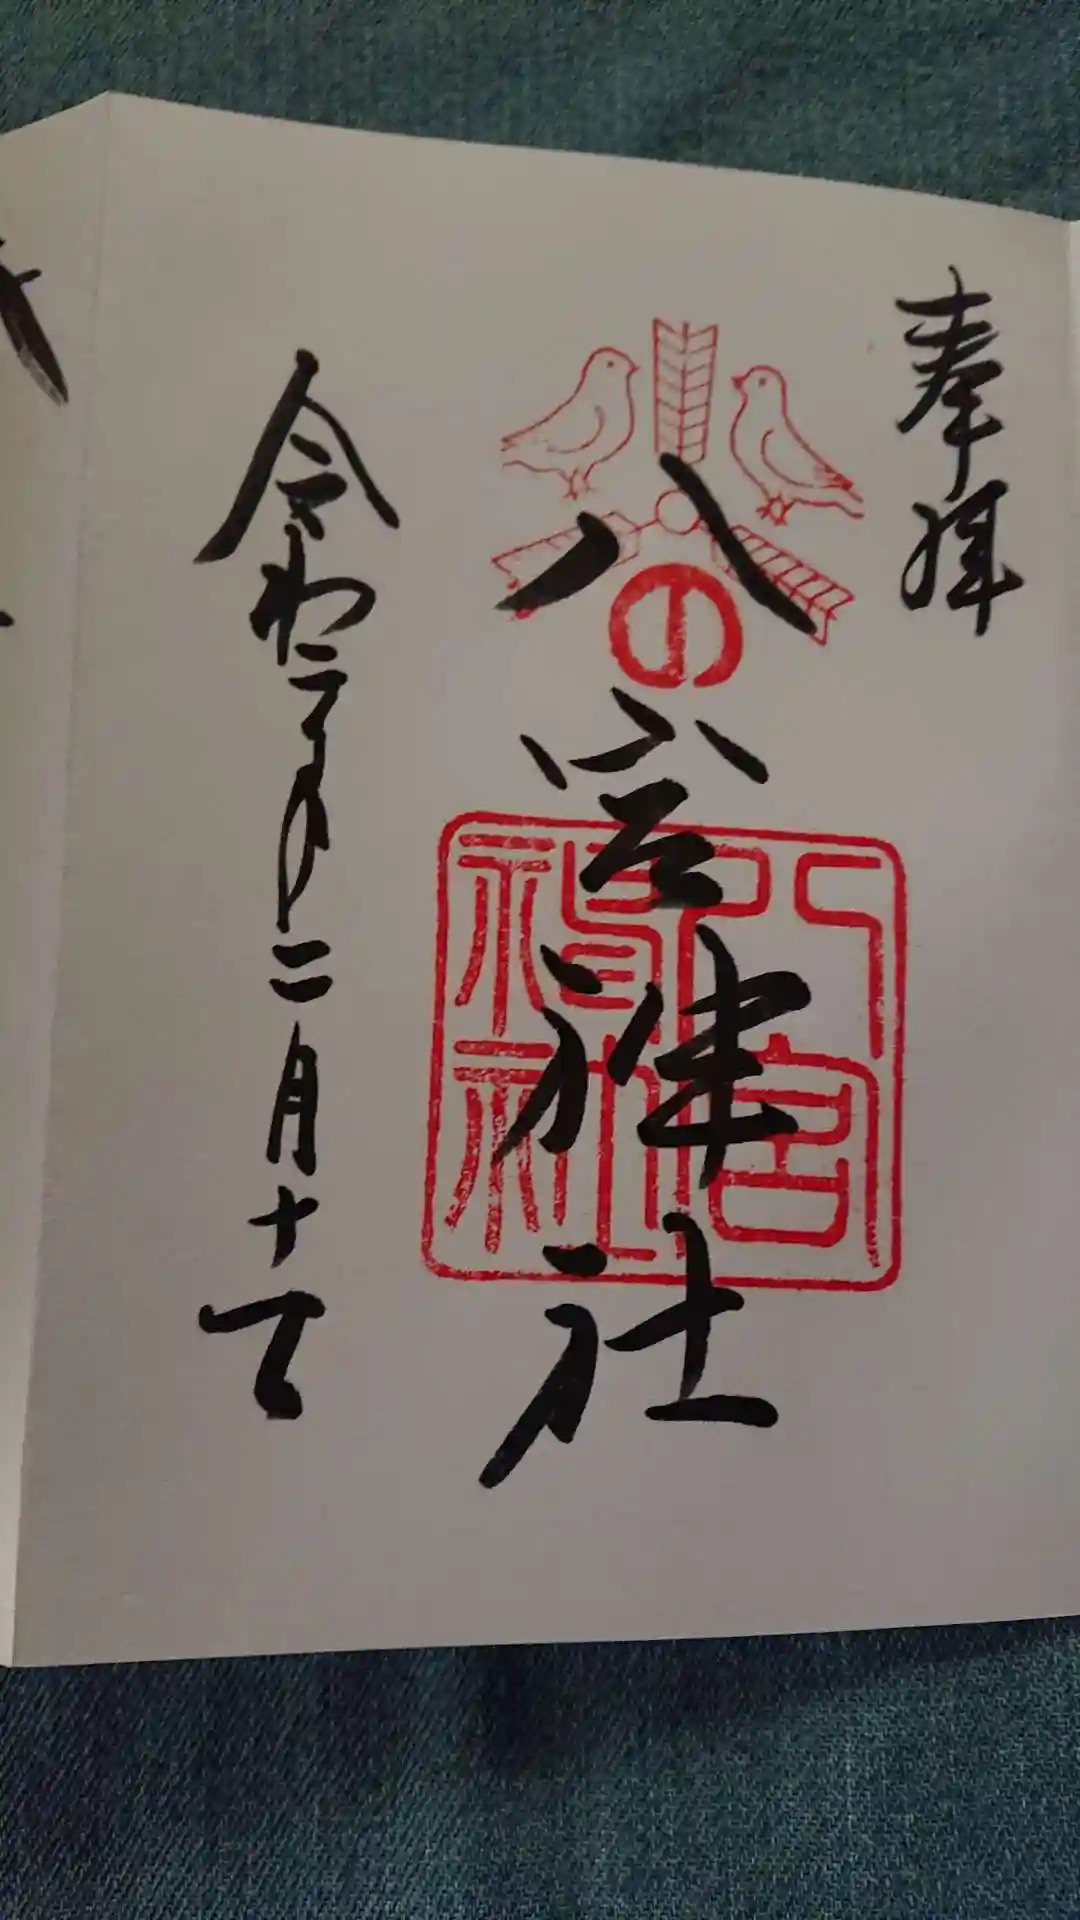 奉拝
八宮神社
八宮
神社
令和二年二月十一日